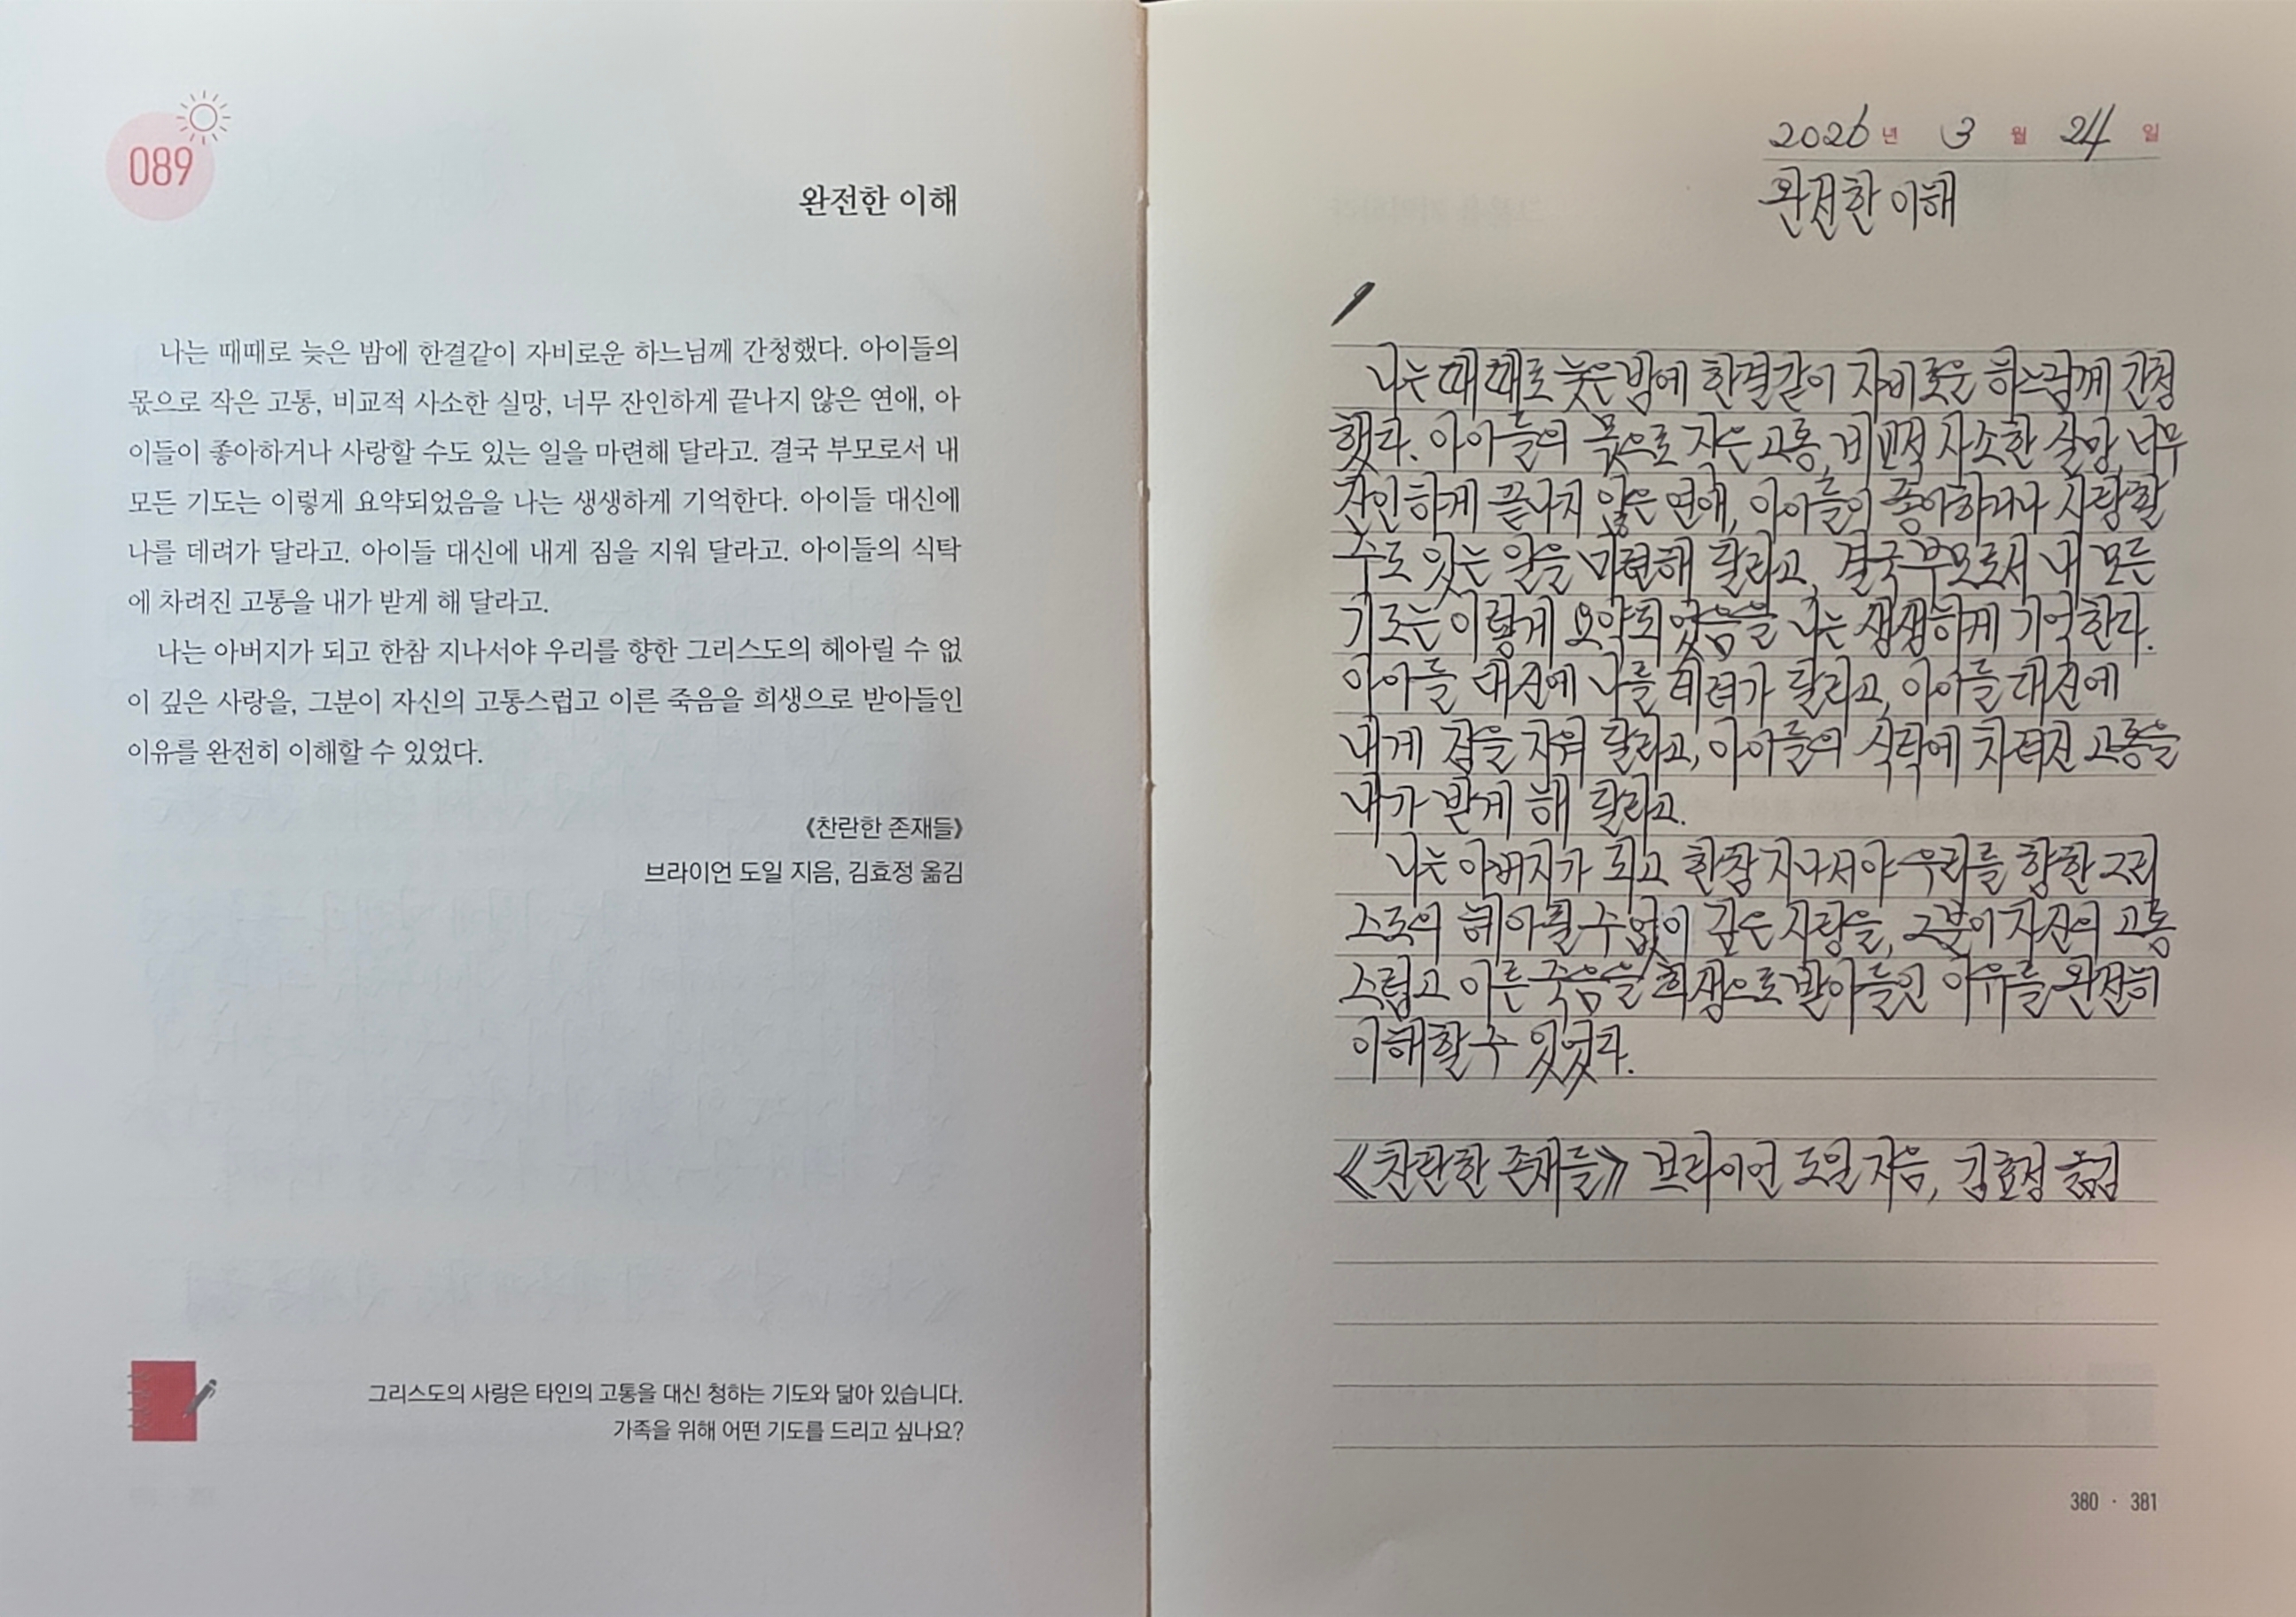 089
완전한 이해
나는 때때로 늦은 밤에 한결같이 자비로운 하느님께 간청했다. 아이들의
몫으로 작은 고통, 비교적 사소한 실망, 너무 잔인하게 끝나지 않은 연애, 아
이들이 좋아하거나 사랑할 수도 있는 일을 마련해 달라고. 결국 부모로서 내
모든 기도는 이렇게 요약되었음을 나는 생생하게 기억한다. 아이들 대신에
나를 데려가 달라고. 아이들 대신에 내게 짐을 지워 달라고. 아이들의 식탁
에 차려진 고통을 내가 받게 해 달라고.
나는 아버지가 되고 한참 지나서야 우리를 향한 그리스도의 헤아릴 수 없
이 깊은 사랑을, 그분이 자신의 고통스럽고 이른 죽음을 희생으로 받아들인
이유를 완전히 이해할 수 있었다.
《찬란한 존재들》
브라이언 도일 지음, 김효정 옮김
그리스도의 사랑은 타인의 고통을 대신 청하는 기도와 닮아 있습니다.
가족을 위해 어떤 기도를 드리고 싶나요?
2026 년 3 월 24 일
완전한 이해
나는 때때로 늦은 밤에 한결같이 자비로운 하느님께 간청
했다. 아이들의 몫으로 작은 고통, 비교적 사소한 실망, 너무
잔인하게 끝나지 않은 연애, 아이들이 좋아하거나 사랑할
수도 있는 일을 마련해 달라고, 결국 부모로서 내 모든
기도는 이렇게 요약되었음을 나는 생생하게 기억한다.
아이들 대신에 나를 데려가 달라고, 아이들 대신에
내게 짐을 지워 달라고, 아이들의 식탁에 차려진 고통을
내가 받게 해 달라고.
나는 아버지가 되고 한참 지나서야 우리를 향한 그리
스도의 헤아릴 수 없이 깊은 사랑을, 그분이 자신의 고통
스럽고 이른 죽음을 희생으로 받아들인 이유를 완전히
이해할 수 있었다.
《찬란한 존재들》 브라이언 도일 지음, 김효정 옮김
380 · 381